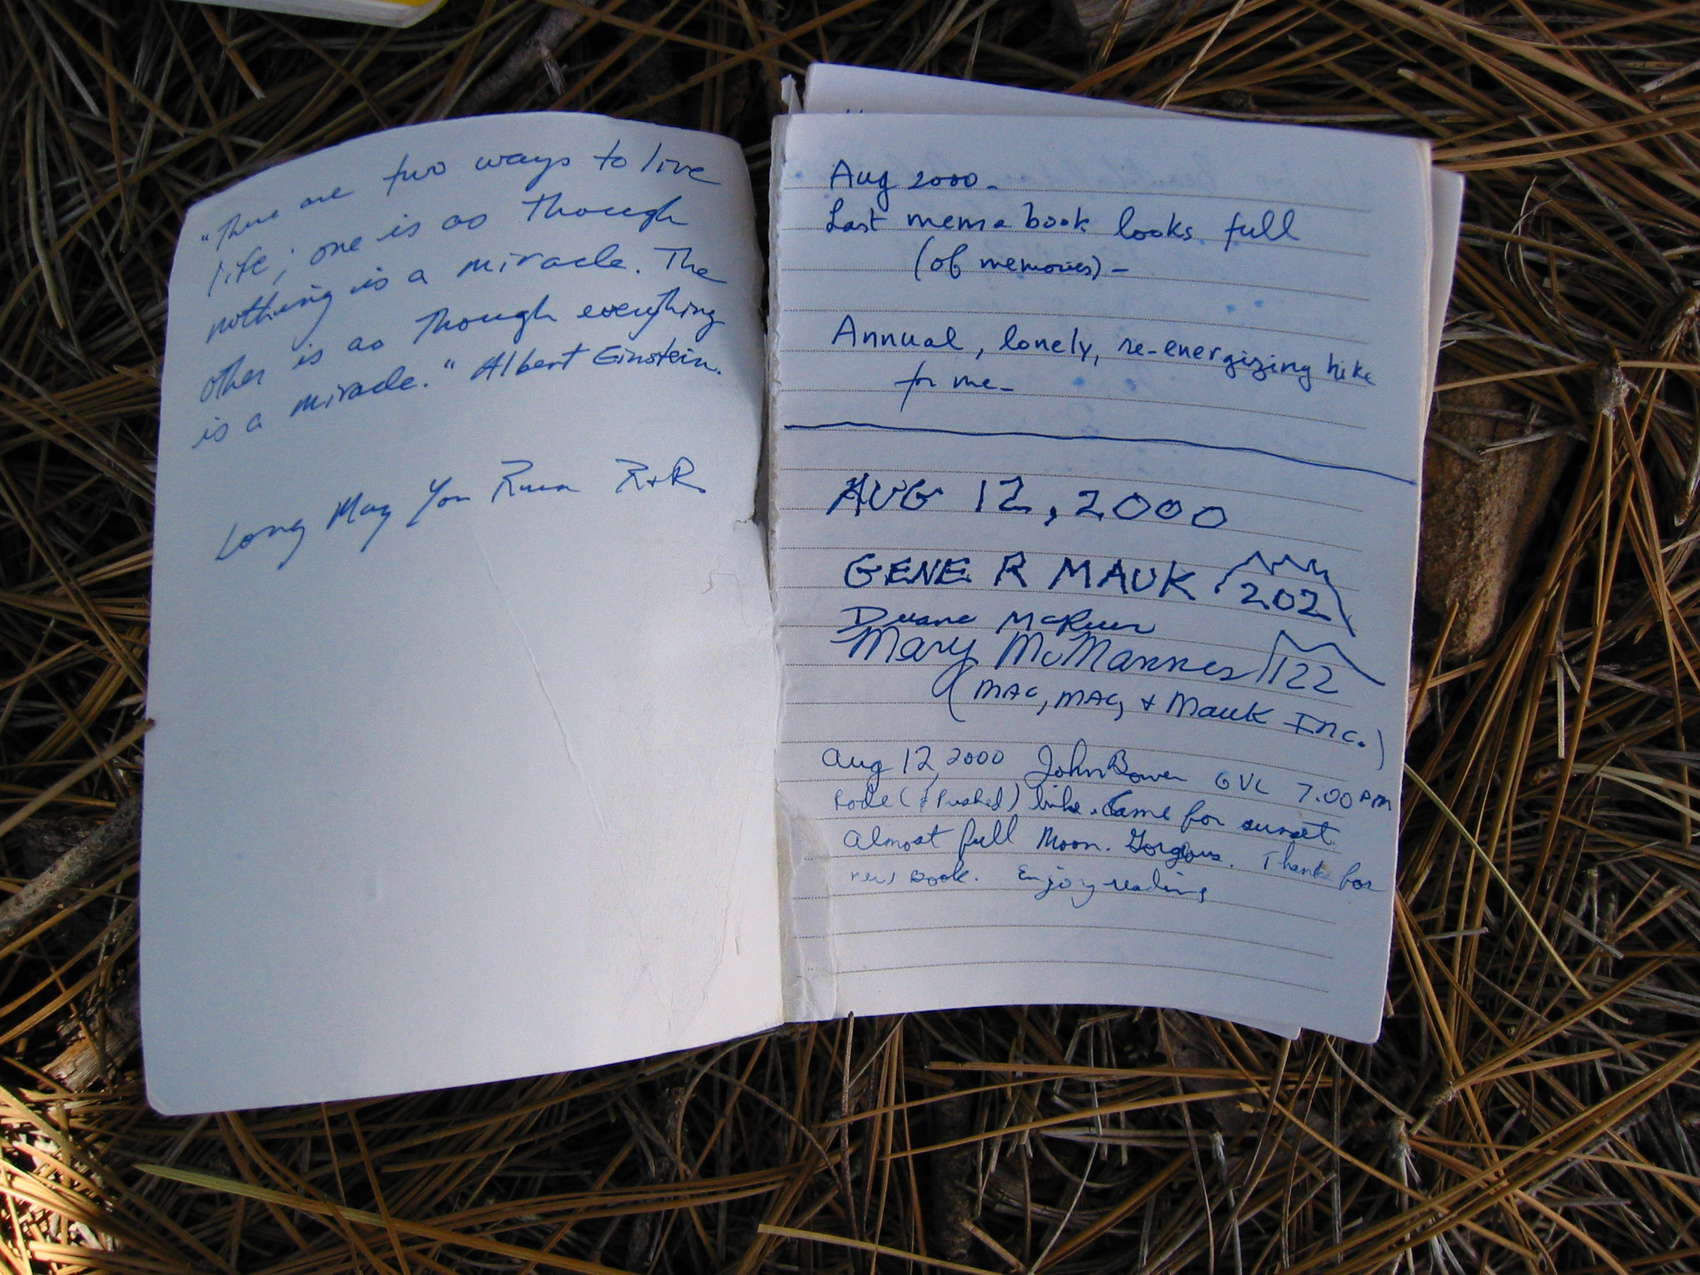 "There are two ways to live
life; one is as though
nothing is a miracle. The
other is as though everything
is a miracle." Albert Einstein.
Long May You Run R&R.
Aug 2000-
Last memo book looks full
(of memories)-
Annual, lonely, re-energizing hike
for me-
AUG 12, 2000
GENE R MAUK 202
Duane McRuer
Mary McMannes 122
(MAC, MAC, & Mauk Inc.)
Aug 12, 2000 John Bowen GVL 7.00 PM
Rode (& Pushed) bike. Came for sunset.
Almost full Moon. Gorgous. Thanks for
new Book. Enjoy reading